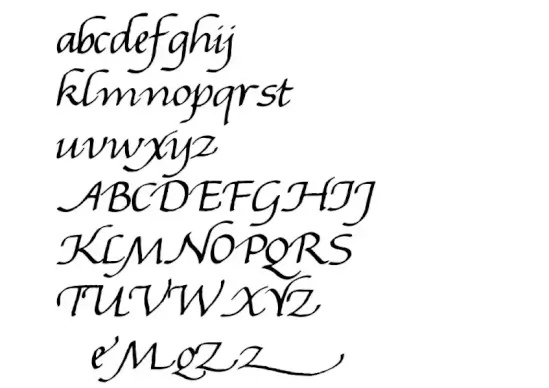 abcdefghij
klmnopqrst
uvwxyz
ABCDEFGHIJ
KLMNOPQRS
TUVWXYZ
e M Q Z z